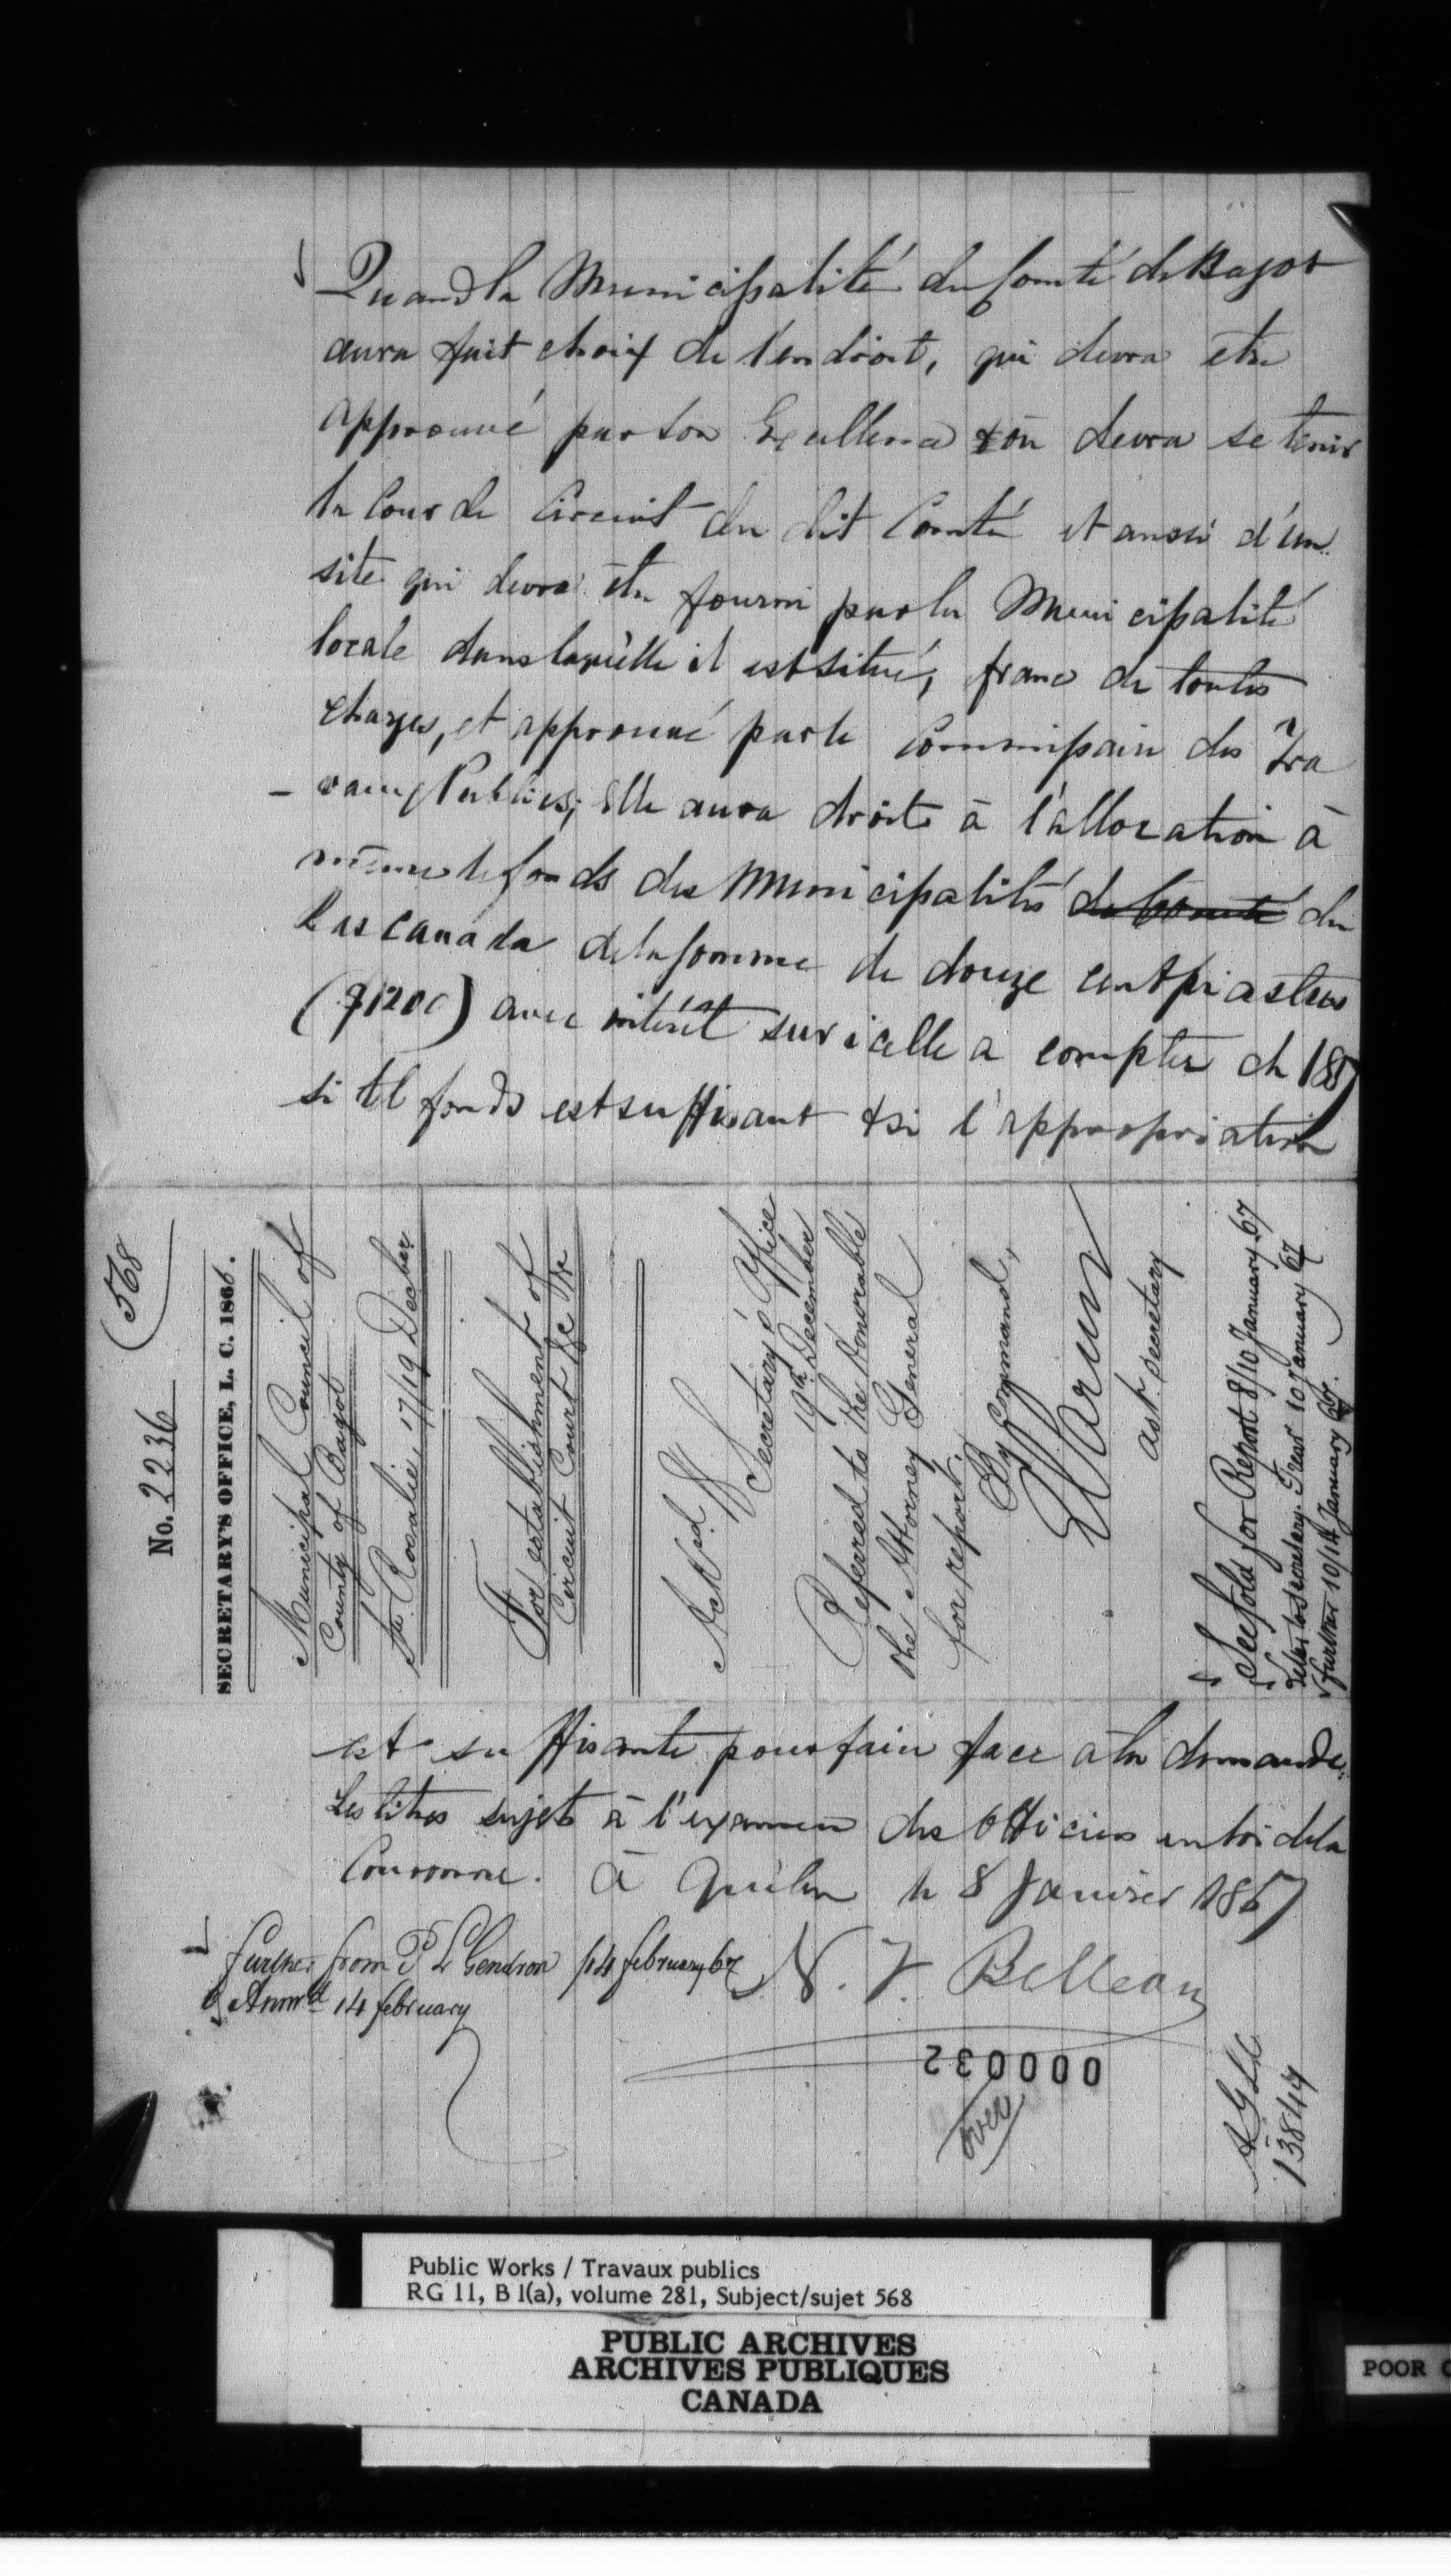 Quand la Municipalité du Comté de Bagot
aura fait choix de l'endroit, qui devra etre
approuvé par Son Excellence & où devra se tenir
la Cour de Circuit du dit Comté et aussi d'un
site qui devra être fourni par la Municipalité
locale dans laquelle il est situé, franc de toutes
charges, et approuvé par le Commissaire des Tra
- vaux Publics; Elle aura droit à l'allocation à
même le fonds des Municipalités de Comté du
bas Canada de la somme de douze cent piastres
($1200) avec intérêt sur icelle a compter de 1857
si tel fonds est suffisant & si l'appropriation
568
No. 2236
SECRETARY'S OFFICE, L. C. 1866.
Municipal Council of
County of Bagot
Ste. Rosalie 17/19 December
For establishment of
Circuit Court &c &c
Ack.ed
Secretary's Office
19th December
Referred to the Honorable
the Attorney General
for report.
By Command,
ast. Secretary
See fold for Report 8/10 January 67
Letter to Secretary Trear 10 January 67
Further 10/14 January 67.
est suffisante pour faire face à la demande.
Les titres sujets à l'examen des Officiers en loi de la
Couronne. à Québec le 8 Janvier 1867
N. F. Belleau
further from P L Gendron 14 february 67
Answd 14 february
000032
over
AGLC
13844
Public Works / Travaux publics
RG 11, B 1(a), volume 281, Subject/sujet 568
PUBLIC ARCHIVES
ARCHIVES PUBLIQUES
CANADA
POOR